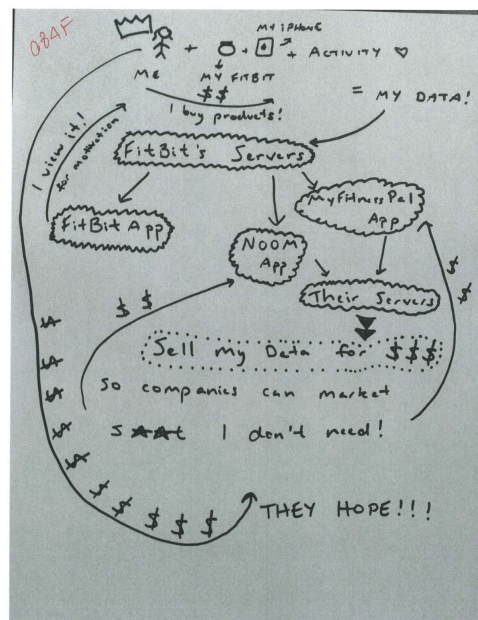 084F
MY iPHONE
+ + + ACTIVITY ♡
ME
MY FITBIT
$$
I buy products!
= MY DATA!
I view it!
for motivation
FitBit's Servers
FitBit App
MyFitnessPal
App
NOOM
App
Their Servers
$ $
$
$
Sell my Data for $$$
So companies can market
S**t I don't need!
$
$
$
$
$
$ $ $ $ $
THEY HOPE!!!